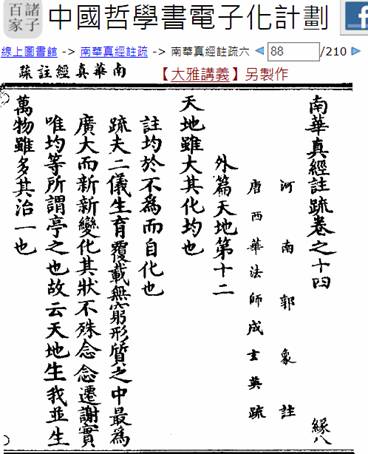 諸子
百家
中國哲學書電子化計劃
線上圖書館 -> 南華真經註疏 -> 南華真經註疏六 88 /210
南華真經註疏
【大雅講義】另製作
南華真經註疏卷之十四 緜八
河南郭象註
唐西華法師成玄英疏
外篇天地第十二
天地雖大其化均也
註均於不為而自化也
疏夫二儀生育覆載無窮形質之中最為
廣大而新新變化其狀不殊念念遷謝實
唯均等所謂亭之也故云天地生我並生
萬物雖多其治一也